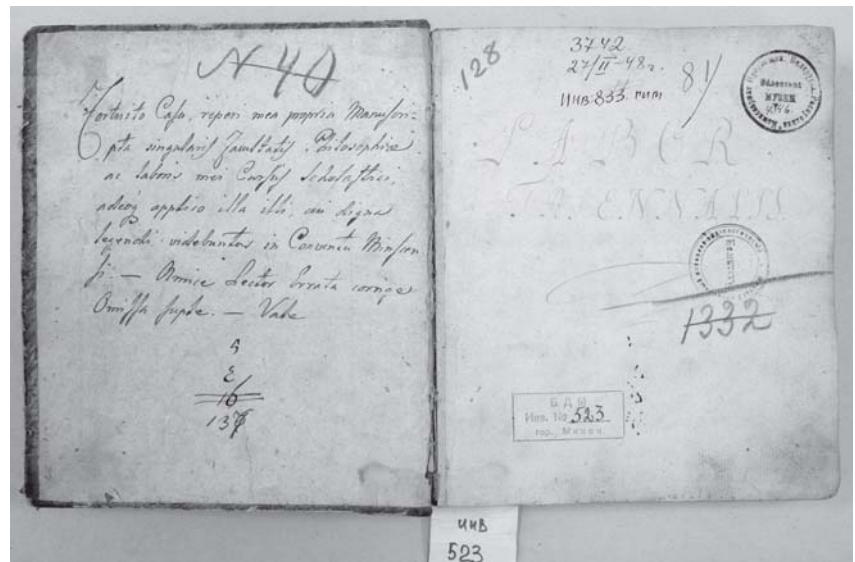 N 40
Fortuito Casu, reperi mea propria Manuscri-
pta singularis Facultatis Philosophiae
ac laboris mei Cursus Scholastici,
adeoq applico illa illi, cui digna
legendi videbuntur in Conventu Minscen
si. — Amice Lector Errata corrige
Omissa suple. — Vale
5
16
137
128
3742
27/II-48г.
ИНВ. 833
81
LABOR
TRIENNALIS
МУЗЕЙ
1332
БДМ
Инв. № 523
гор. Минск
ИНВ
523